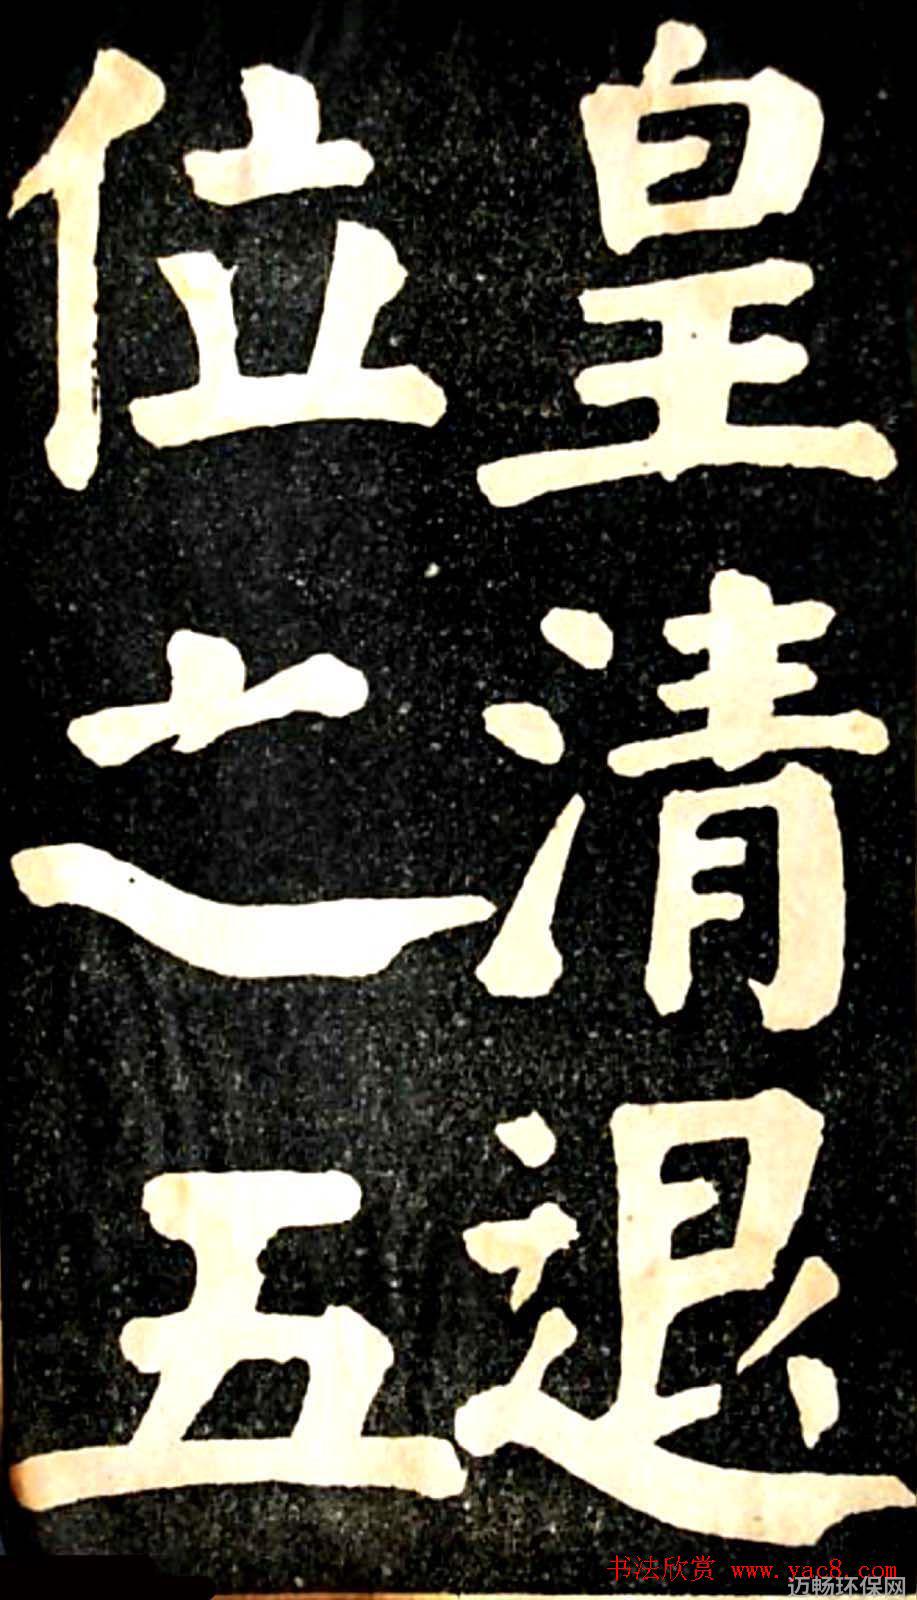 皇清退
位之五
书法欣赏 www.yac8.com
迈畅环保网